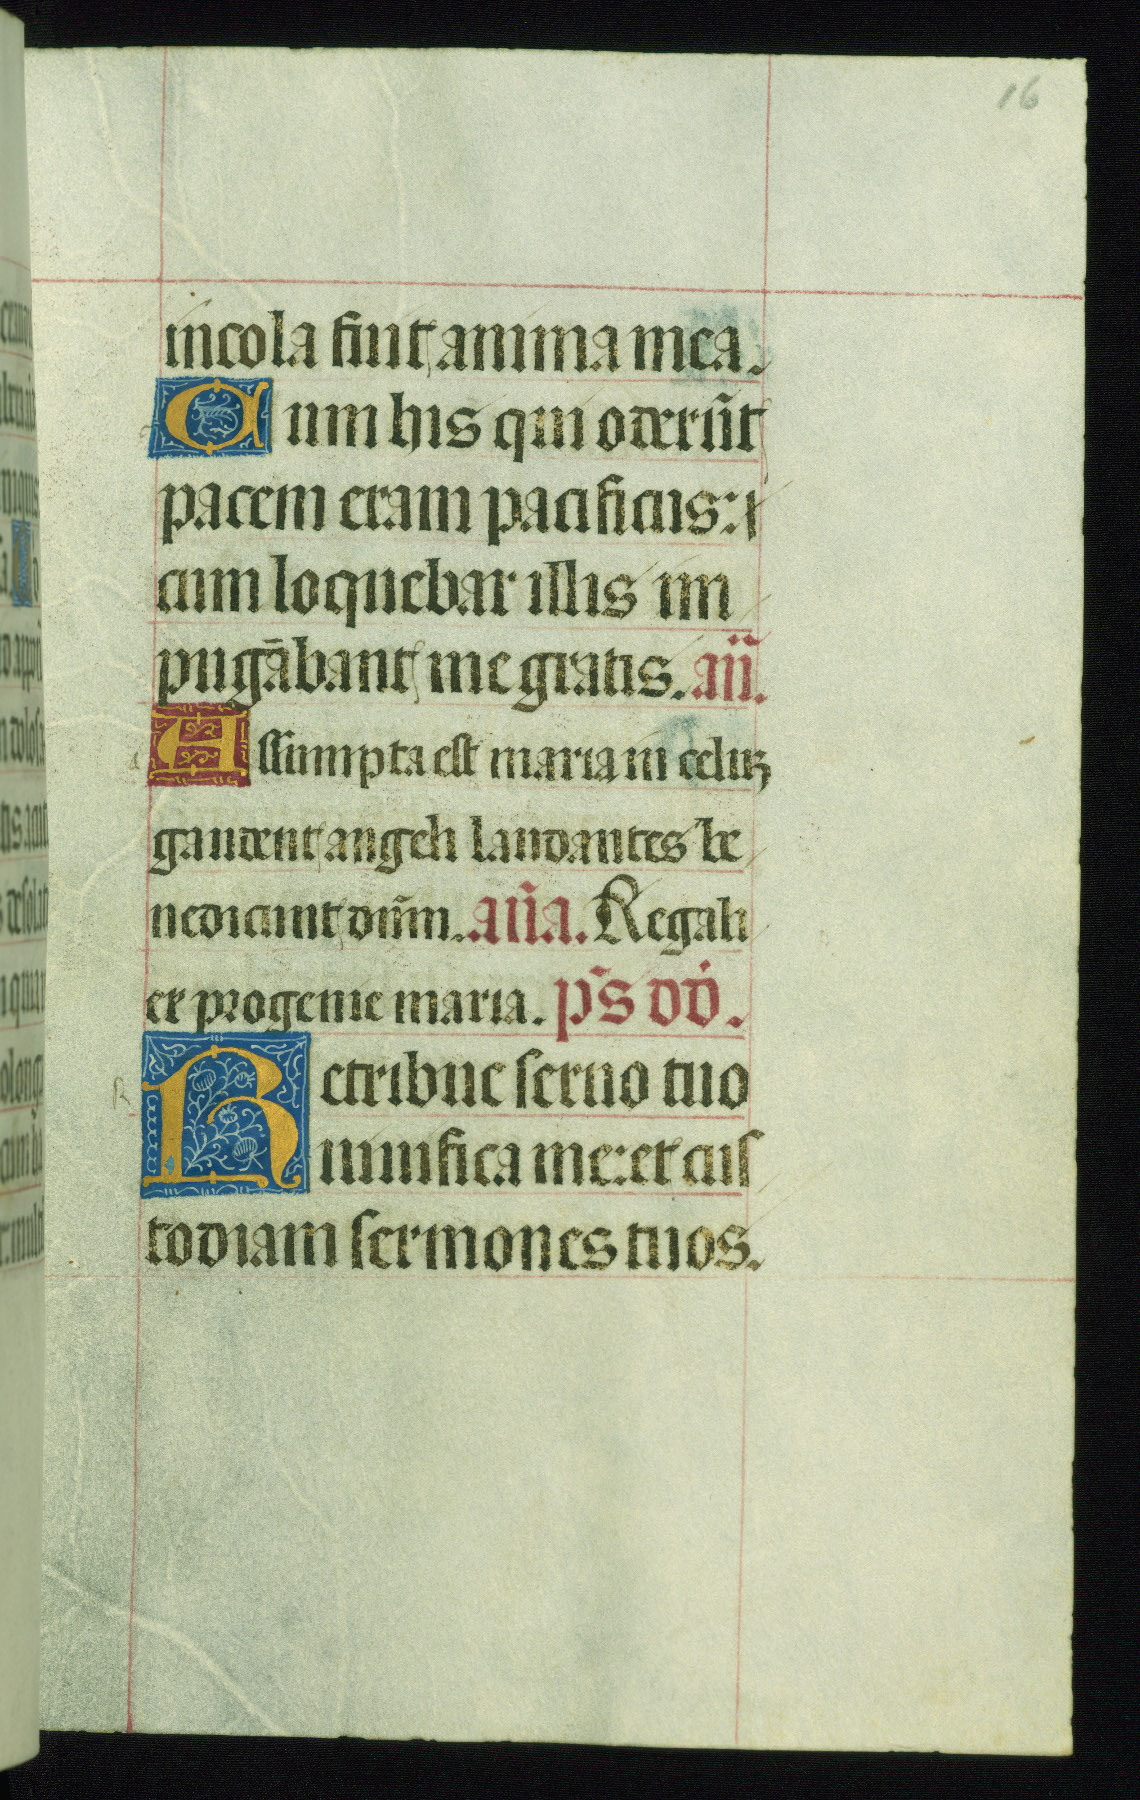 16
incola fuit anima mea.
Cum his qui oderūt
pacem eram pacificus: ⁊
cum loquebar illis im
pugābant me gratis. añ.
Assumpta est maria in celuꝫ
gaudent angeli laudantes be
nedicunt dñm. aña. Regali
ex progenie maria. p̄s dd̄.
Retribue seruo tuo
uiuifica me: et cus
todiam sermones tuos.